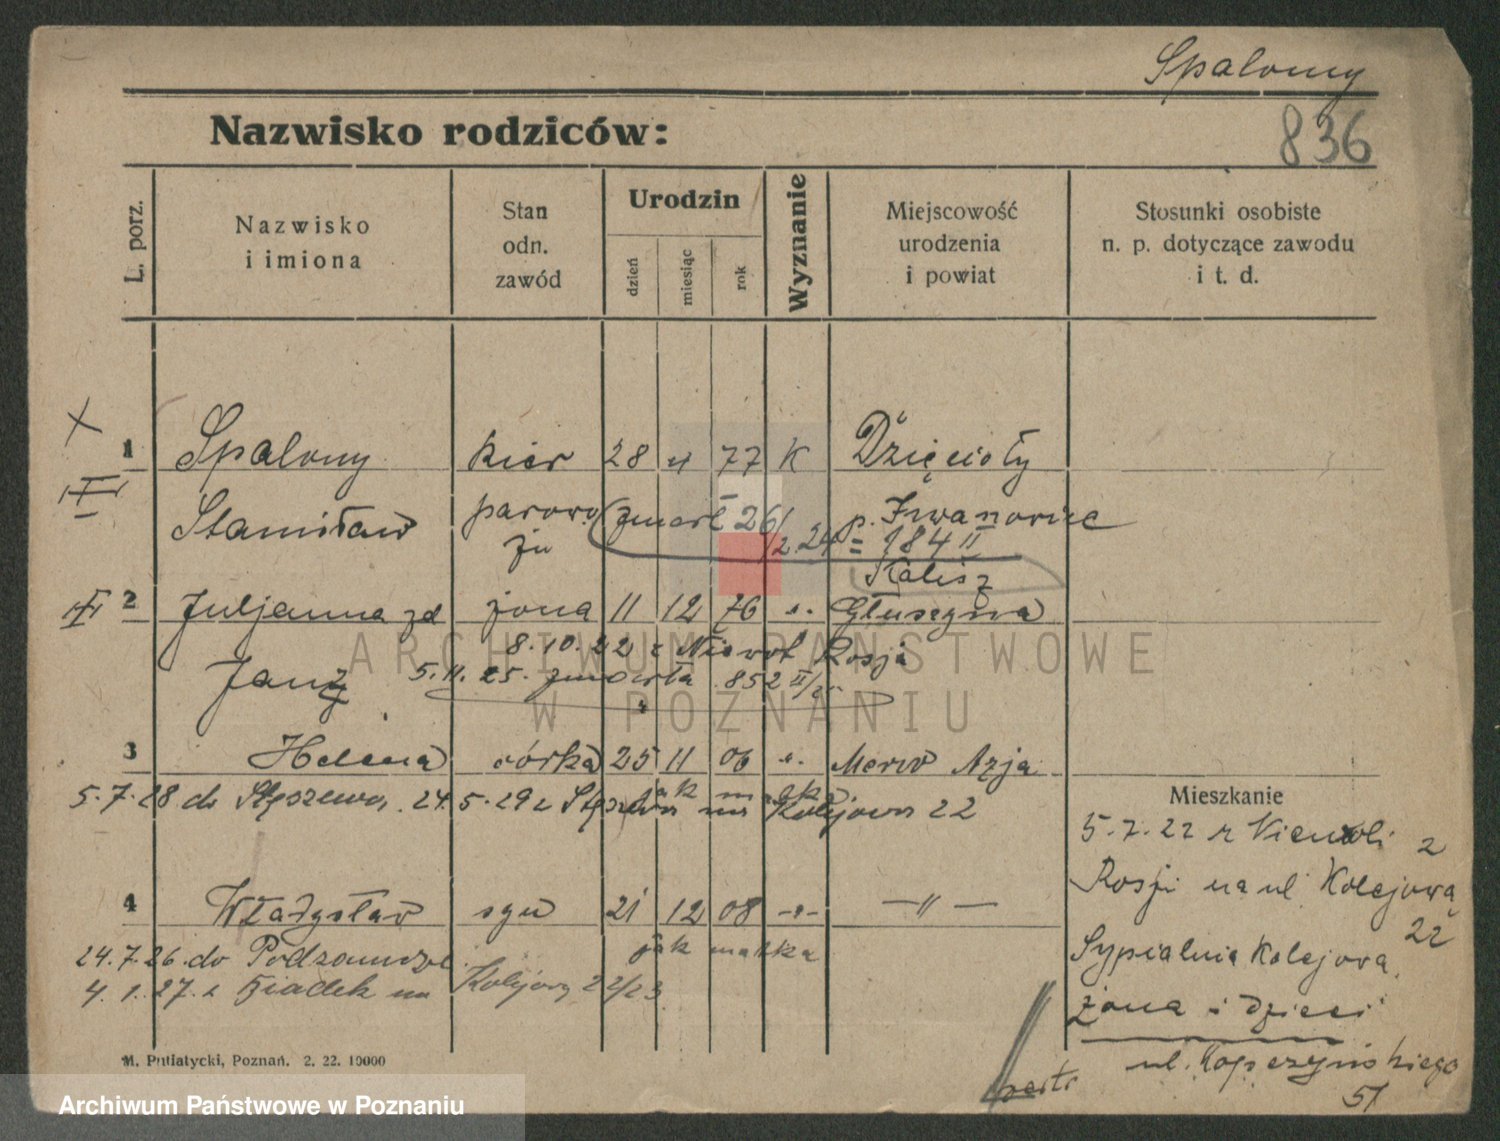 Spalony
Nazwisko rodziców:
836
L. porz.
Nazwisko
i imiona
Stan
odn.
zawód
Urodzin
dzień
miesiąc
rok
Wyznanie
Miejscowość
urodzenia
i powiat
Stosunki osobiste
n. p. dotyczące zawodu
i t. d.
1 Spalony kier 28 77 K Dzięcioły
Stanisław parowo zmarł 26/2 24 p. Iwanowice
zu = 984 II
Kalisz
2 Juljanna zd żona 11 12 76 Głuszyna
8.10.22 z Rosja
Janz 5.11.25. zmarła 852 II/25
3 Helena córka 25 11 06 Merw Azja
jak matka
5.7.28 do Stęszewa 24.5.29 z Stęszewa na Kolejowa 22
4 Władysław syn 21 12 08 -"- — " —
jak matka
24.7.26. do Podzamcze
4.1.27. z na Kolejową 22/23
Mieszkanie
5.7.22 z
Rosji na ul Kolejową
22
Sypialnia Kolejowa
żona i dzieci
ul. Kopczyńskiego
51
M. Putiatycki, Poznań. 2. 22. 10000
ARCHIWUM PAŃSTWOWE
W POZNANIU
Archiwum Państwowe w Poznaniu